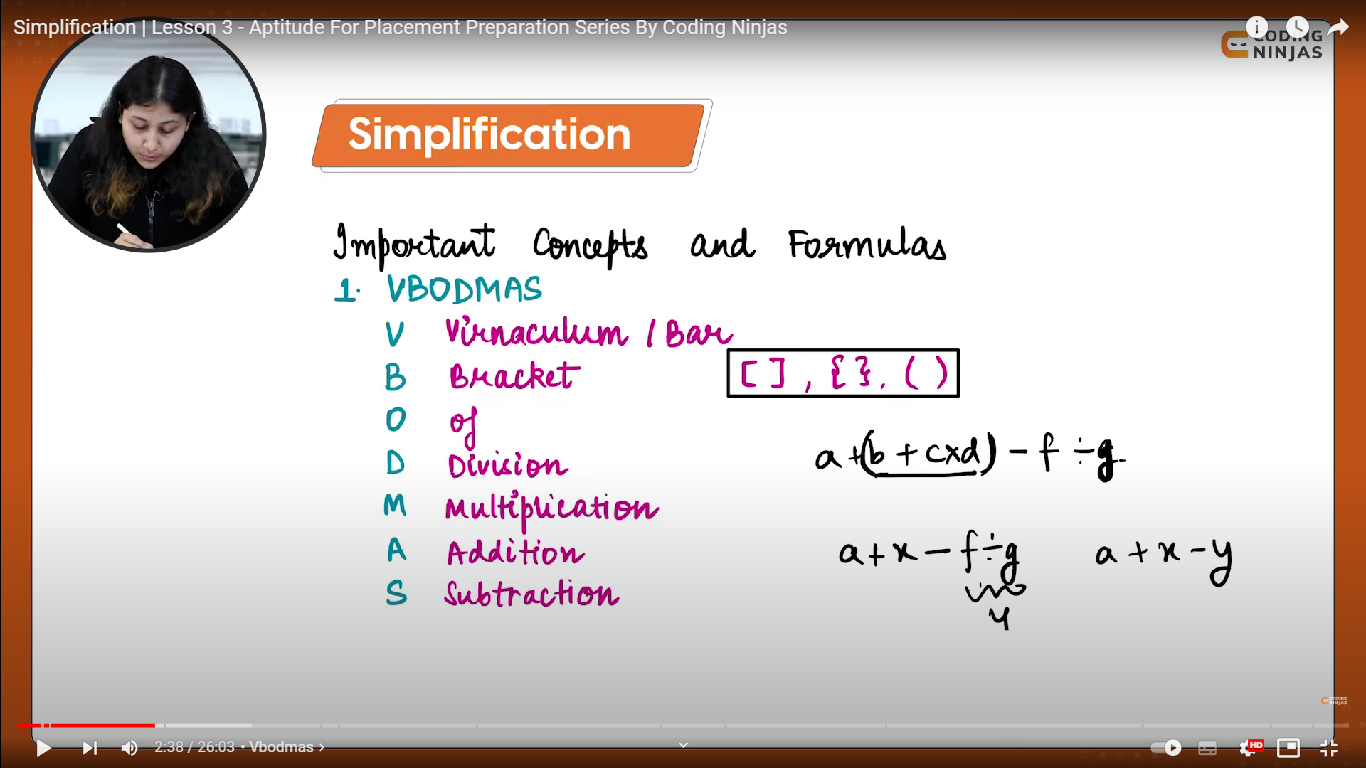 Simplification | Lesson 3 - Aptitude For Placement Preparation Series By Coding Ninjas
CODING
NINJAS
Simplification
Important Concepts and Formulas
1. VBODMAS
V Virnaculum / Bar
B Bracket [ ] , { } . ( )
O of
D Division
M Multiplication
A Addition
S Subtraction
a + (b + c×d) − f ÷ g
a + x − f ÷ g
y
a + x − y
CODING
NINJAS
2:38 / 26:03 • Vbodmas >
HD